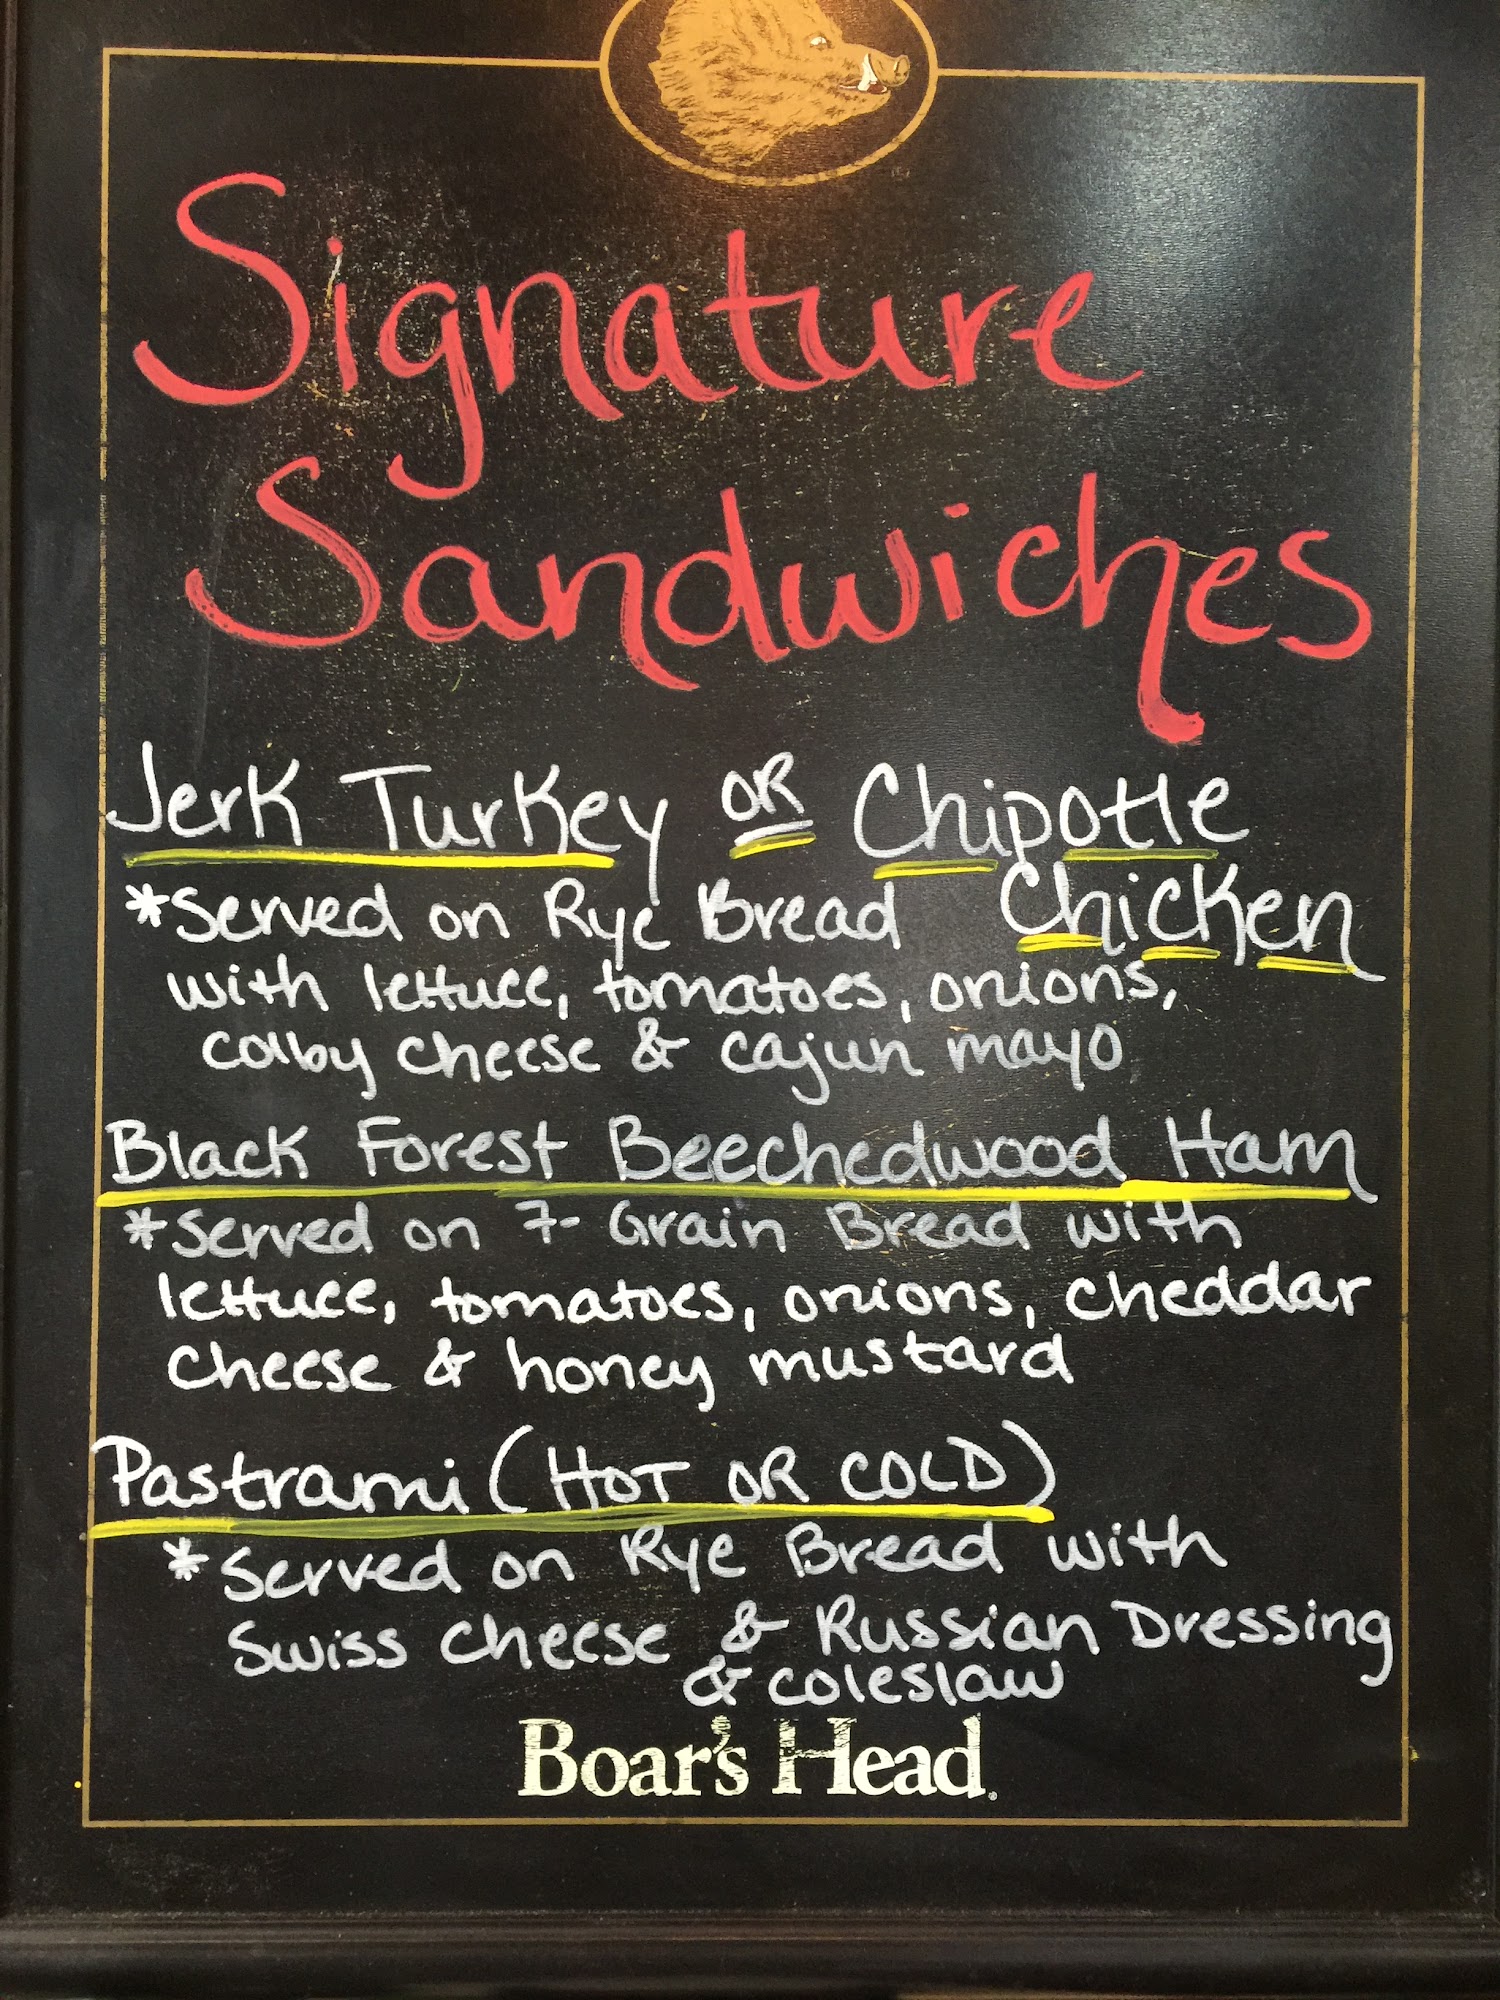 Signature
Sandwiches
Jerk Turkey OR Chipotle
Chicken
*Served on Rye Bread
with lettuce, tomatoes, onions,
colby cheese & cajun mayo
Black Forest Beechedwood Ham
*Served on 7-Grain Bread with
lettuce, tomatoes, onions, cheddar
cheese & honey mustard
Pastrami (HOT OR COLD)
*Served on Rye Bread with
Swiss cheese & Russian Dressing
& coleslaw
Boar's Head